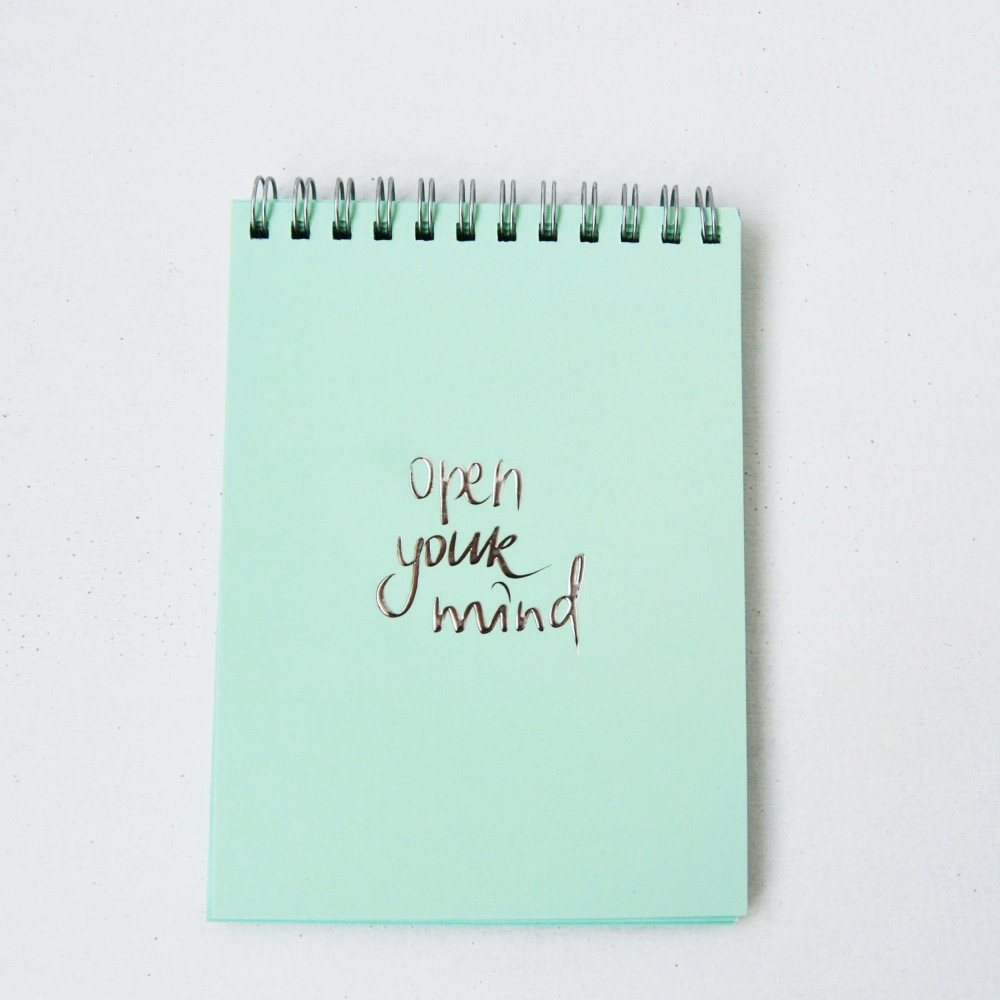 open
your
mind